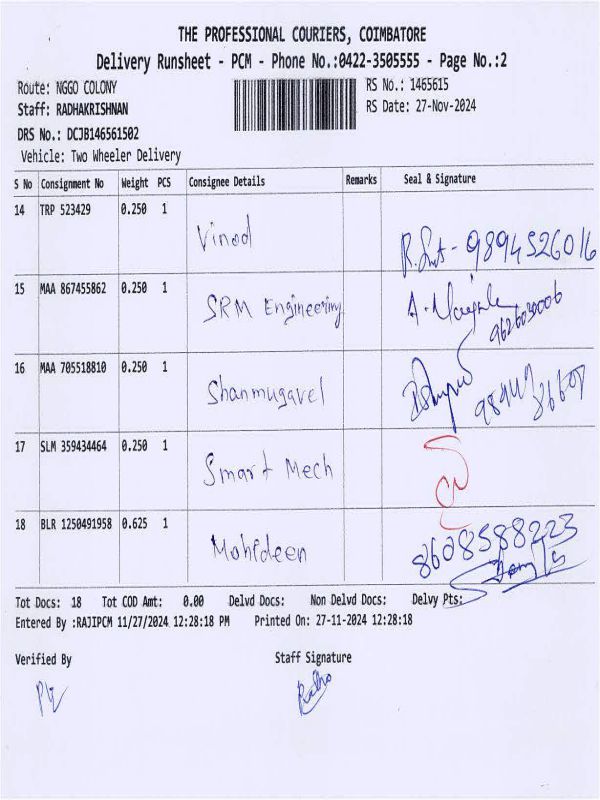 THE PROFESSIONAL COURIERS, COIMBATORE
Delivery Runsheet - PCM - Phone No.:0422-3505555 - Page No.:2
Route: NGGO COLONY RS No.: 1465615
Staff: RADHAKRISHNAN RS Date: 27-Nov-2024
DRS No.: DCJB146561502
Vehicle: Two Wheeler Delivery
S No Consignment No Weight PCS Consignee Details Remarks Seal & Signature
14 TRP 523429 0.250 1 Vinod 9894526016
15 MAA 867455862 0.250 1 SRM Engineering 9626030006
16 MAA 705518810 0.250 1 Shanmugavel
17 SLM 359434464 0.250 1 Smart Mech
18 BLR 1250491958 0.625 1 Mohideen 8608588223
Tot Docs: 18 Tot COD Amt: 0.00 Delvd Docs: Non Delvd Docs: Delvy Pts:
Entered By :RAJIPCM 11/27/2024 12:28:18 PM Printed On: 27-11-2024 12:28:18
Verified By Staff Signature